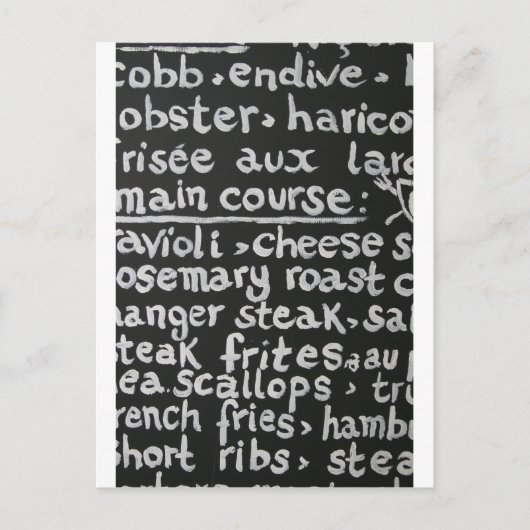 cobb > endive >
obster > harico
risée aux larc
main course:
ravioli > cheese s
osemary roast c
anger steak > sa
steak frites au p
sea scallops > tru
french fries > hambu
short ribs > stea